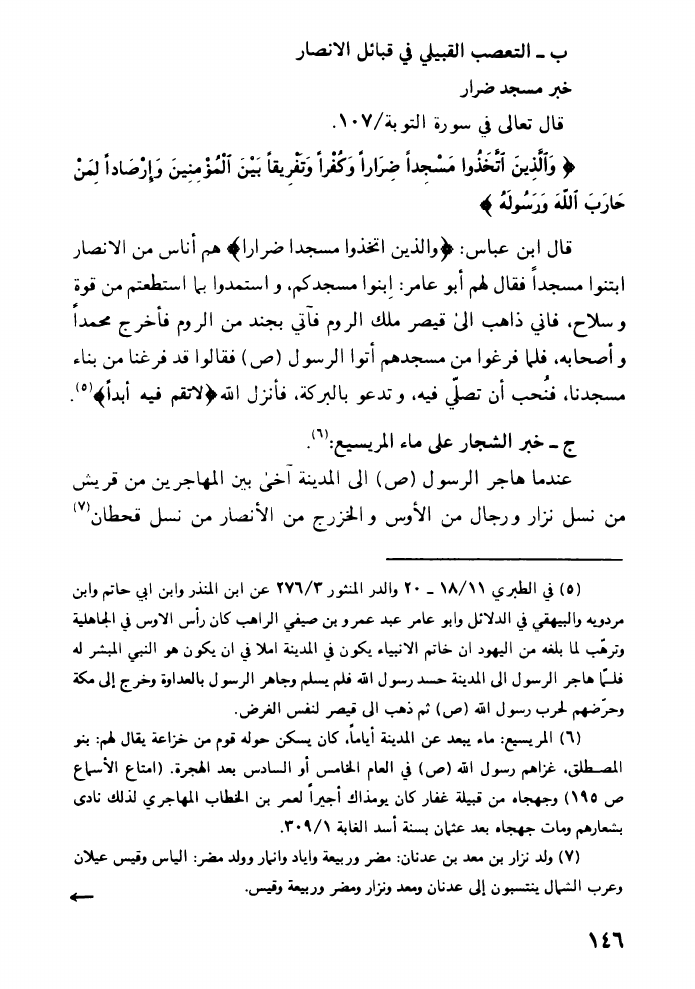 ب ـ التعصب القبيلي في قبائل الانصار
خبر مسجد ضرار
قال تعالى في سورة التوبة/١٠٧.
﴿ وَٱلَّذِينَ ٱتَّخَذُوا مَسْجِداً ضِرَاراً وَكُفْراً وَتَفْرِيقاً بَيْنَ ٱلْمُؤْمِنِينَ وَإِرْصَاداً لِمَنْ
حَارَبَ ٱللَّهَ وَرَسُولَهُ ﴾
قال ابن عباس: ﴿والذين اتخذوا مسجدا ضرارا﴾ هم أناس من الانصار
ابتنوا مسجداً فقال لهم أبو عامر: إبنوا مسجدكم، و استمدوا بما استطعتم من قوة
و سلاح، فاني ذاهب الىٰ قيصر ملك الروم فآتي بجند من الروم فأخرج محمداً
و أصحابه، فلما فرغوا من مسجدهم أتوا الرسول (ص) فقالوا قد فرغنا من بناء
مسجدنا، فنُحب أن تصلّي فيه، و تدعو بالبركة، فأنزل الله ﴿لاتقم فيه أبداً﴾(٥).
ج ـ خبر الشجار على ماء المريسيع:(٦).
عندما هاجر الرسول (ص) الى المدينة آخىٰ بين المهاجرين من قريش
من نسل نزار و رجال من الأوس و الخزرج من الأنصار من نسل قحطان(٧)
(٥) في الطبري ١٨/١١ ـ ٢٠ والدر المنثور ٢٧٦/٣ عن ابن المنذر وابن ابي حاتم وابن
مردويه والبيهقي في الدلائل وابو عامر عبد عمرو بن صيفي الراهب كان رأس الاوس في الجاهلية
وترهّب لما بلغه من اليهود ان خاتم الانبياء يكون في المدينة املا في ان يكون هو النبي المبشر له
فلـمّا هاجر الرسول الى المدينة حسد رسول الله فلم يسلم وجاهر الرسول بالعداوة وخرج إلى مكة
وحرّضهم لحرب رسول الله (ص) ثم ذهب الى قيصر لنفس الغرض.
(٦) المريسيع: ماء يبعد عن المدينة أياماً، كان يسكن حوله قوم من خزاعة يقال لهم: بنو
المصـطلق، غزاهم رسول الله (ص) في العام الخامس أو السادس بعد الهجرة. (امتاع الأسماع
ص ١٩٥) وجهجاه من قبيلة غفار كان يومذاك أجيراً لعمر بن الخطاب المهاجري لذلك نادى
بشعارهم ومات جهجاه بعد عثمان بسنة أسد الغابة ٣٠٩/١.
(٧) ولد نزار بن معد بن عدنان: مضر وربيعة واياد وانمار وولد مضر: الياس وقيس عيلان
وعرب الشمال ينتسبون إلى عدنان ومعد ونزار ومضر وربيعة وقيس.
←
١٤٦